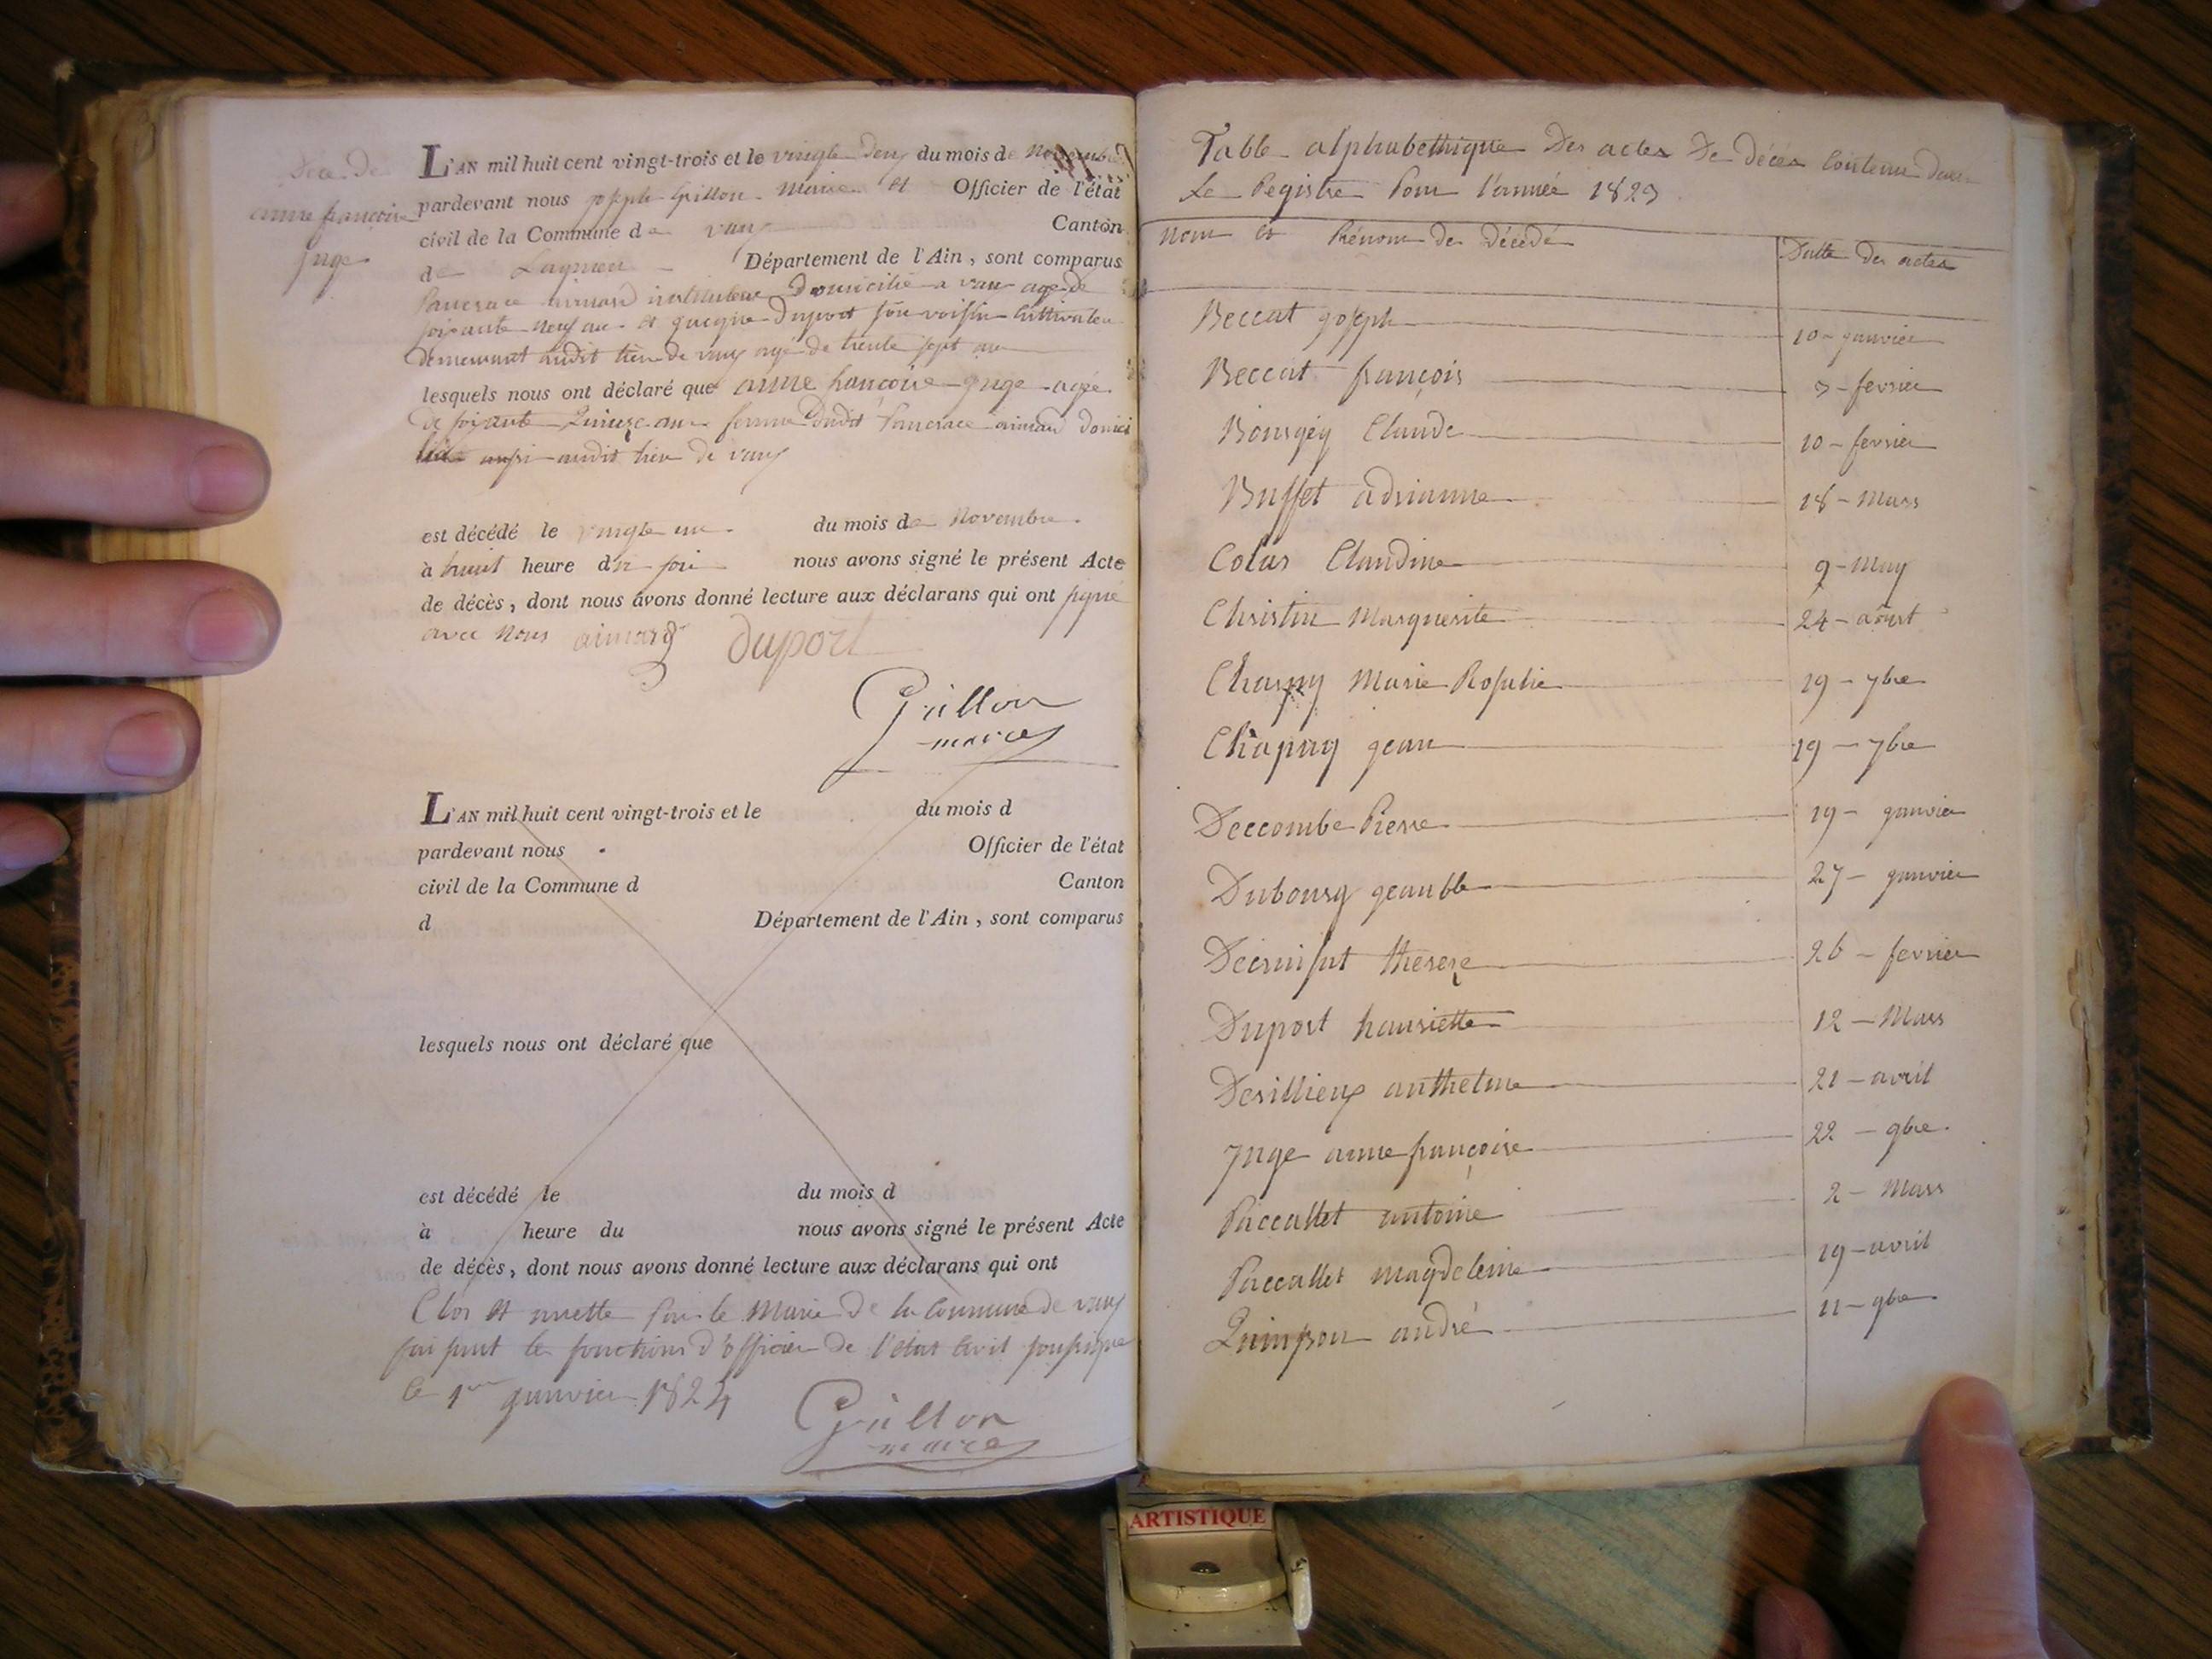 Décè De
anne françoise
Juge
L'AN mil huit cent vingt-trois et le vingte deux du mois de Novembre
pardevant nous joseph Grillon Maire et Officier de l'état
civil de la Commune de vaux Canton
de Lagnieu Département de l'Ain, sont comparus
Pancrace aimard instituteur Domicilié a vaux agé de
soixante neuf ans et Duport son voisin Cultivateu
demeurant audit lieu de vaux agé de trente sept ans
lesquels nous ont déclaré que anne françoise Juge agée
de soixante Quinze ans femme dudit Pancrace aimard domici
liée aussi audit lieu de vaux
est décédé le vingte un du mois de Novembre.
à huit heure du soir nous avons signé le présent Acte
de décès, dont nous avons donné lecture aux déclarans qui ont signé
avec Nous aimard duport
Grillon
maire
L'AN mil huit cent vingt-trois et le du mois d
pardevant nous Officier de l'état
civil de la Commune d Canton
d Département de l'Ain, sont comparus
lesquels nous ont déclaré que
est décédé le du mois d
à heure du nous avons signé le présent Acte
de décès, dont nous avons donné lecture aux déclarans qui ont
Clos et par le Maire de la Commune de vaux
faisant les fonctions d'officier de l'état Civil soussigné
le 1er janvier 1824
Grillon
maire
Table alphabethique Des actes De décès Contenu dans
Le Registre Pour l'année 1823
Nom et Prénom des décédé Datte des actes
Beccat joseph 10 - janvier
Beccat françois 3 - fevrier
Bourgey Claude 10 - fevrier
Buffet adrianne 18 - Mars
Colas Claudine 9 - May
Christin Marguerite 24 - aoust
Chapuy Marie Rosalie 19 - 7bre
Chapuy jean 19 - 7bre
Deccombe Pierre 19 - janvier
Dubourg jean bte 27 - janvier
therese 26 - fevrier
Duport hanriette 12 - Mars
Derillieux anthelme 21 - avril
Juge anne françoise 22 - 9bre.
Paccallet antoine 2 - Mars
Paccallet magdeleine 19 - avril
Quinson andré 11 - 9bre
ARTISTIQUE